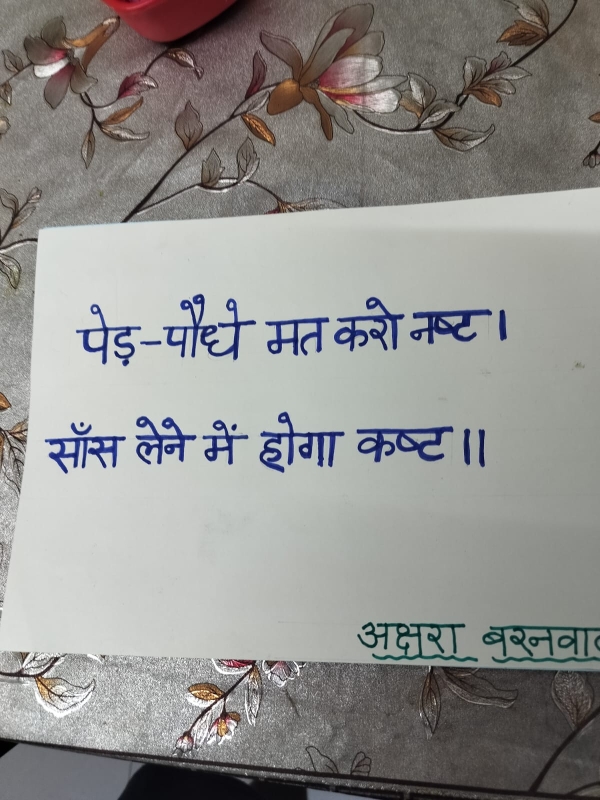 पेड़-पौधे मत करो नष्ट।
साँस लेने में होगा कष्ट॥
अक्षरा